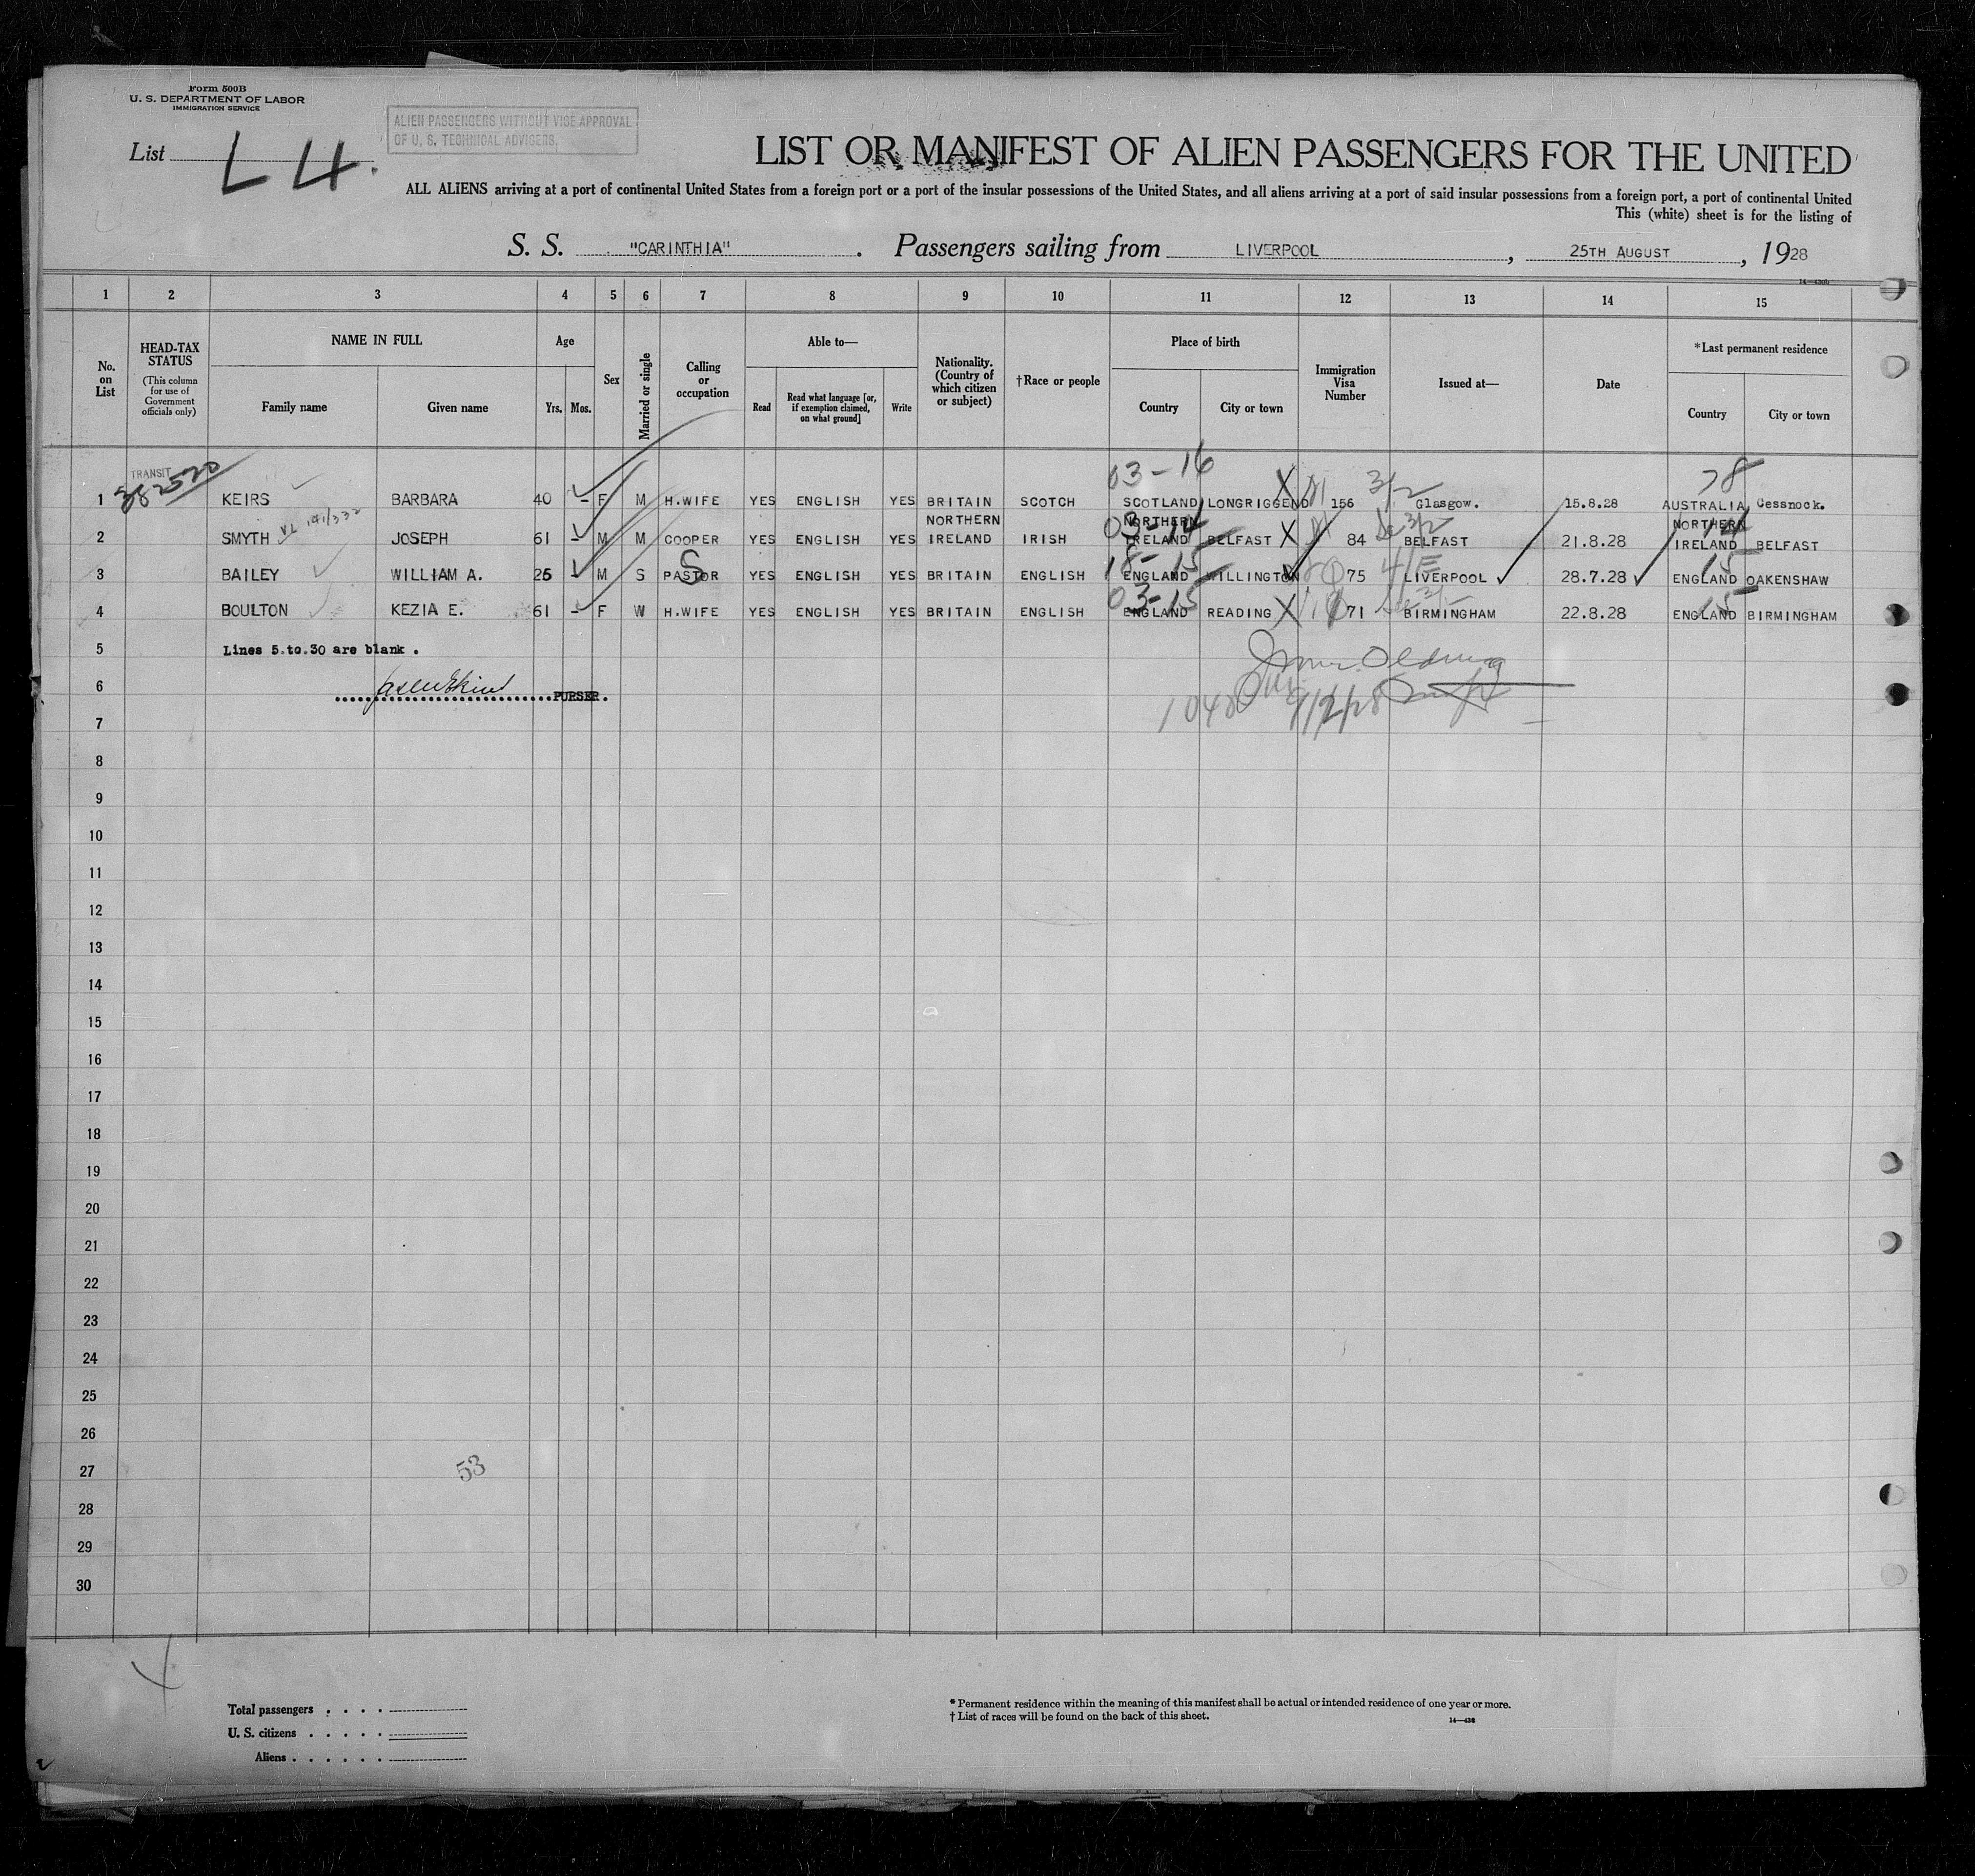 Form 500B
U. S. DEPARTMENT OF LABOR
IMMIGRATION SERVICE
ALIEN PASSENGERS WITHOUT VISE APPROVAL
OF U. S. TECHNICAL ADVISERS.
List L 4.
LIST OR MANIFEST OF ALIEN PASSENGERS FOR THE UNITED
ALL ALIENS arriving at a port of continental United States from a foreign port or a port of the insular possessions of the United States, and all aliens arriving at a port of said insular possessions from a foreign port, a port of continental United
This (white) sheet is for the listing of
S. S. "CARINTHIA". Passengers sailing from LIVERPOOL, 25TH AUGUST, 1928
1 2 3 4 5 6 7 8 9 10 11 12 13 14 15
No. on List
HEAD-TAX STATUS (This column for use of Government officials only)
NAME IN FULL
Family name Given name
Age
Yrs. Mos.
Sex
Married or single
Calling or occupation
Able to—
Read
Read what language [or, if exemption claimed, on what ground]
Write
Nationality. (Country of which citizen or subject)
†Race or people
Place of birth
Country City or town
Immigration Visa Number
Issued at—
Date
*Last permanent residence
Country City or town
TRANSIT
382520
03-16 3/2 78
1 KEIRS BARBARA 40 - F M H.WIFE YES ENGLISH YES BRITAIN SCOTCH SCOTLAND LONGRIGGEND X 156 Glasgow. 15.8.28 AUSTRALIA Cessnock.
NORTHERN NORTHERN NORTHERN
03-14 3/2 14
2 SMYTH VL 141/332 JOSEPH 61 - M M COOPER YES ENGLISH YES IRELAND IRISH IRELAND BELFAST X 84 BELFAST 21.8.28 IRELAND BELFAST
18-15 15
3 BAILEY WILLIAM A. 25 - M S PASTOR S YES ENGLISH YES BRITAIN ENGLISH ENGLAND WILLINGTON 75 LIVERPOOL 28.7.28 ENGLAND OAKENSHAW
03-15 15
4 BOULTON KEZIA E. 61 - F W H.WIFE YES ENGLISH YES BRITAIN ENGLISH ENGLAND READING X 71 BIRMINGHAM 22.8.28 ENGLAND BIRMINGHAM
5 Lines 5.to.30 are blank.
6 PURSER.
7
8
9
10
11
12
13
14
15
16
17
18
19
20
21
22
23
24
25
26
27
53
28
29
30
Total passengers . . . .
U. S. citizens . . . . .
Aliens . . . . . .
* Permanent residence within the meaning of this manifest shall be actual or intended residence of one year or more.
† List of races will be found on the back of this sheet.
14—438